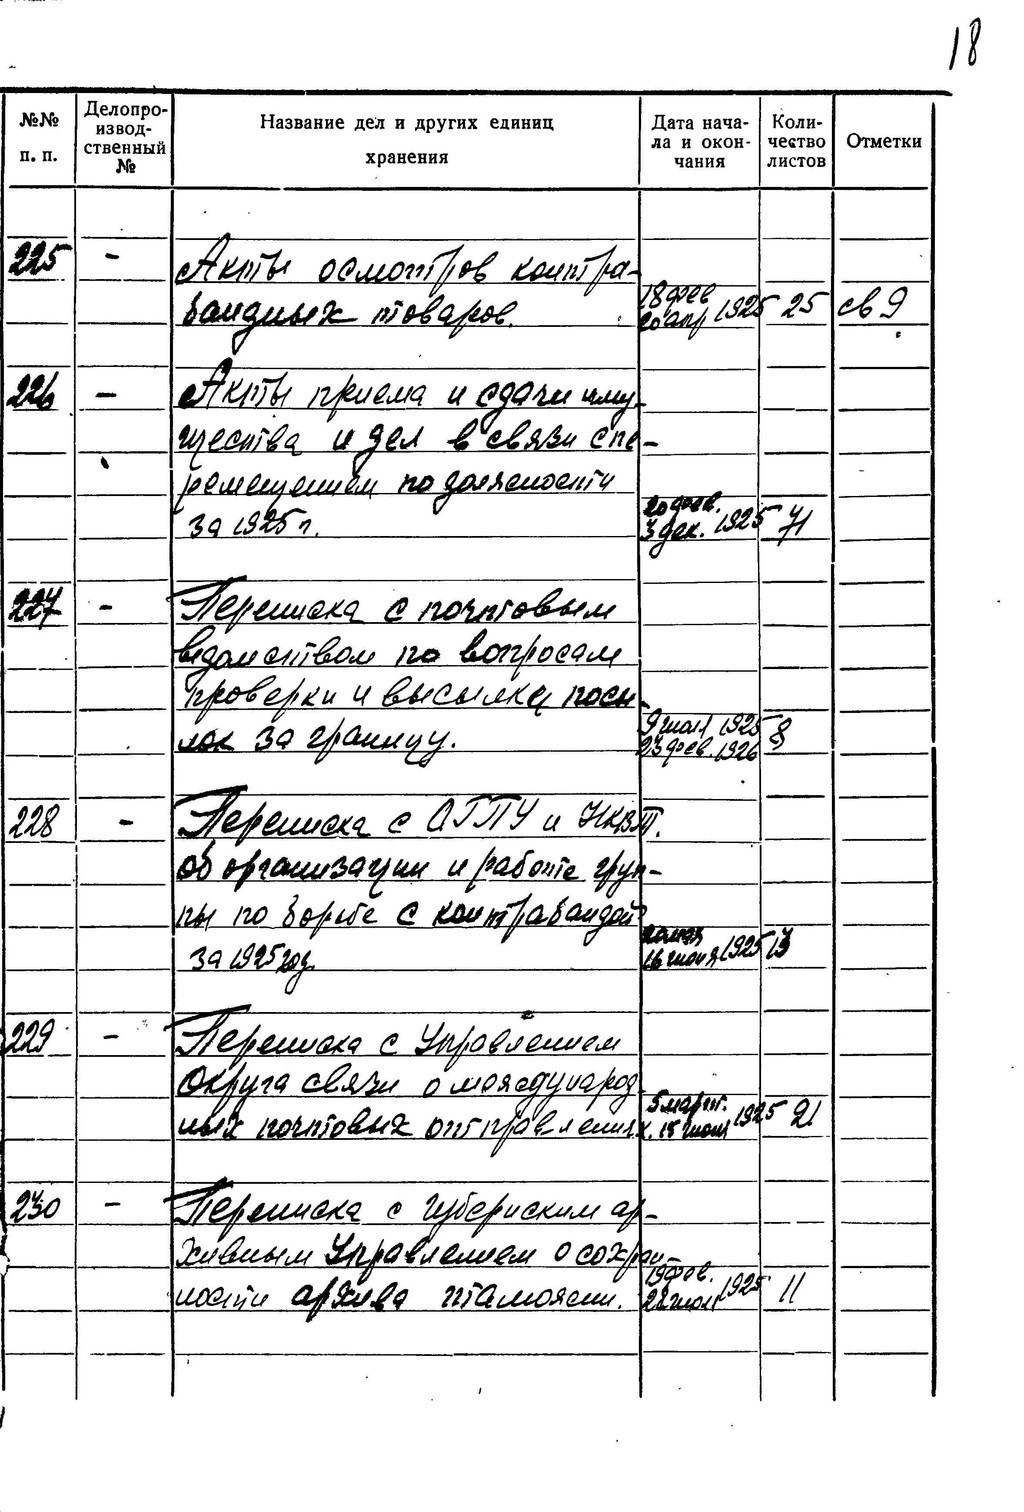 18
№№ п. п.
Делопро-
извод-
ственный
№
Название дел и других единиц
хранения
Дата нача-
ла и окон-
чания
Коли-
чество
листов
Отметки
225 - Акты осмотров контра-
бандных товаров. 18 фев 20 апр 1925 25 св 9
226 - Акты приема и сдачи иму-
щества и дел в связи с пе-
ремещением по должности
за 1925 г. 20 фев. 3 дек. 1925 71
227 - Переписка с почтовым
ведомством по вопросам
проверки и высылки посы-
лок за границу. 9 июля 1925 23 фев. 1926 8
228 - Переписка с ОГПУ и НКВТ.
об организации и работе груп-
пы по борьбе с контрабандой
за 1925 год. 16 июня 1925
229 - Переписка с Управлением
Округа связи о международ-
ных почтовых отправлениях. 5 март. 15 июня 1925 21
230 - Переписка с Губернским ар-
хивным Управлением о сохран-
ности архива таможни. 19 фев. 28 июл 1925 11